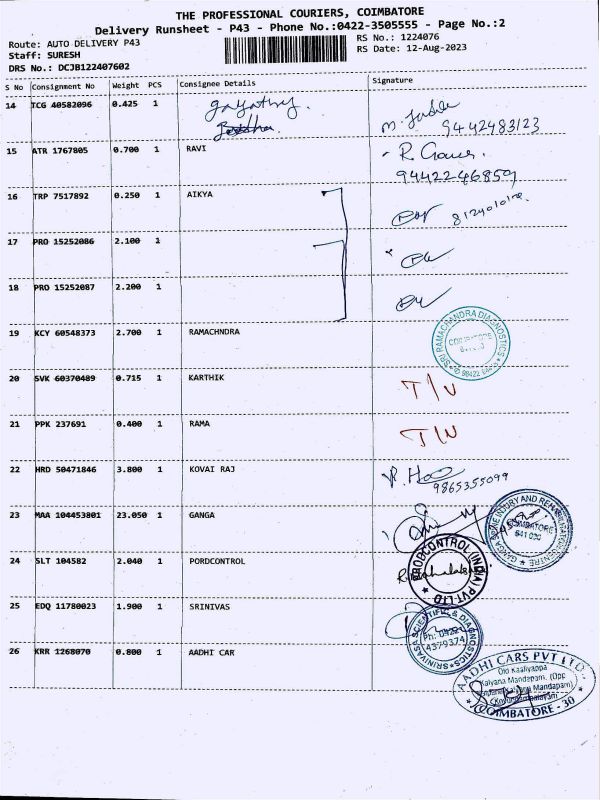 THE PROFESSIONAL COURIERS, COIMBATORE
Delivery Runsheet - P43 - Phone No.:0422-3505555 - Page No.:2
Route: AUTO DELIVERY P43
RS No.: 1224076
Staff: SURESH
RS Date: 12-Aug-2023
DRS No.: DCJB122407602
S No Consignment No Weight PCS Consignee Details Signature
14 TCG 40582096 0.425 1 gayathry.
9442483123
15 ATR 1767805 0.700 1 RAVI R.
9442246859
16 TRP 7517892 0.250 1 AIKYA
17 PRO 15252086 2.100 1
18 PRO 15252087 2.200 1
19 KCY 60548373 2.700 1 RAMACHNDRA SRI RAMACHANDRA DIAGNOSTICS
20 SVK 60370489 0.715 1 KARTHIK T/N
21 PPK 237691 0.400 1 RAMA T/N
22 HRD 50471846 3.800 1 KOVAI RAJ
9865355099
23 MAA 104453801 23.050 1 GANGA
COIMBATORE
24 SLT 104582 2.040 1 PORDCONTROL PRODCONTROL (INDIA) PVT LTD
25 EDQ 11780023 1.900 1 SRINIVAS SRINIVASA SCIENTIFIC & DIAGNOSTICS
4379374
26 KRR 1268070 0.800 1 AADHI CAR AADHI CARS PVT LTD.
Kalyana Mandapam. (Opp
Kalyana Mandapam)
COIMBATORE - 30